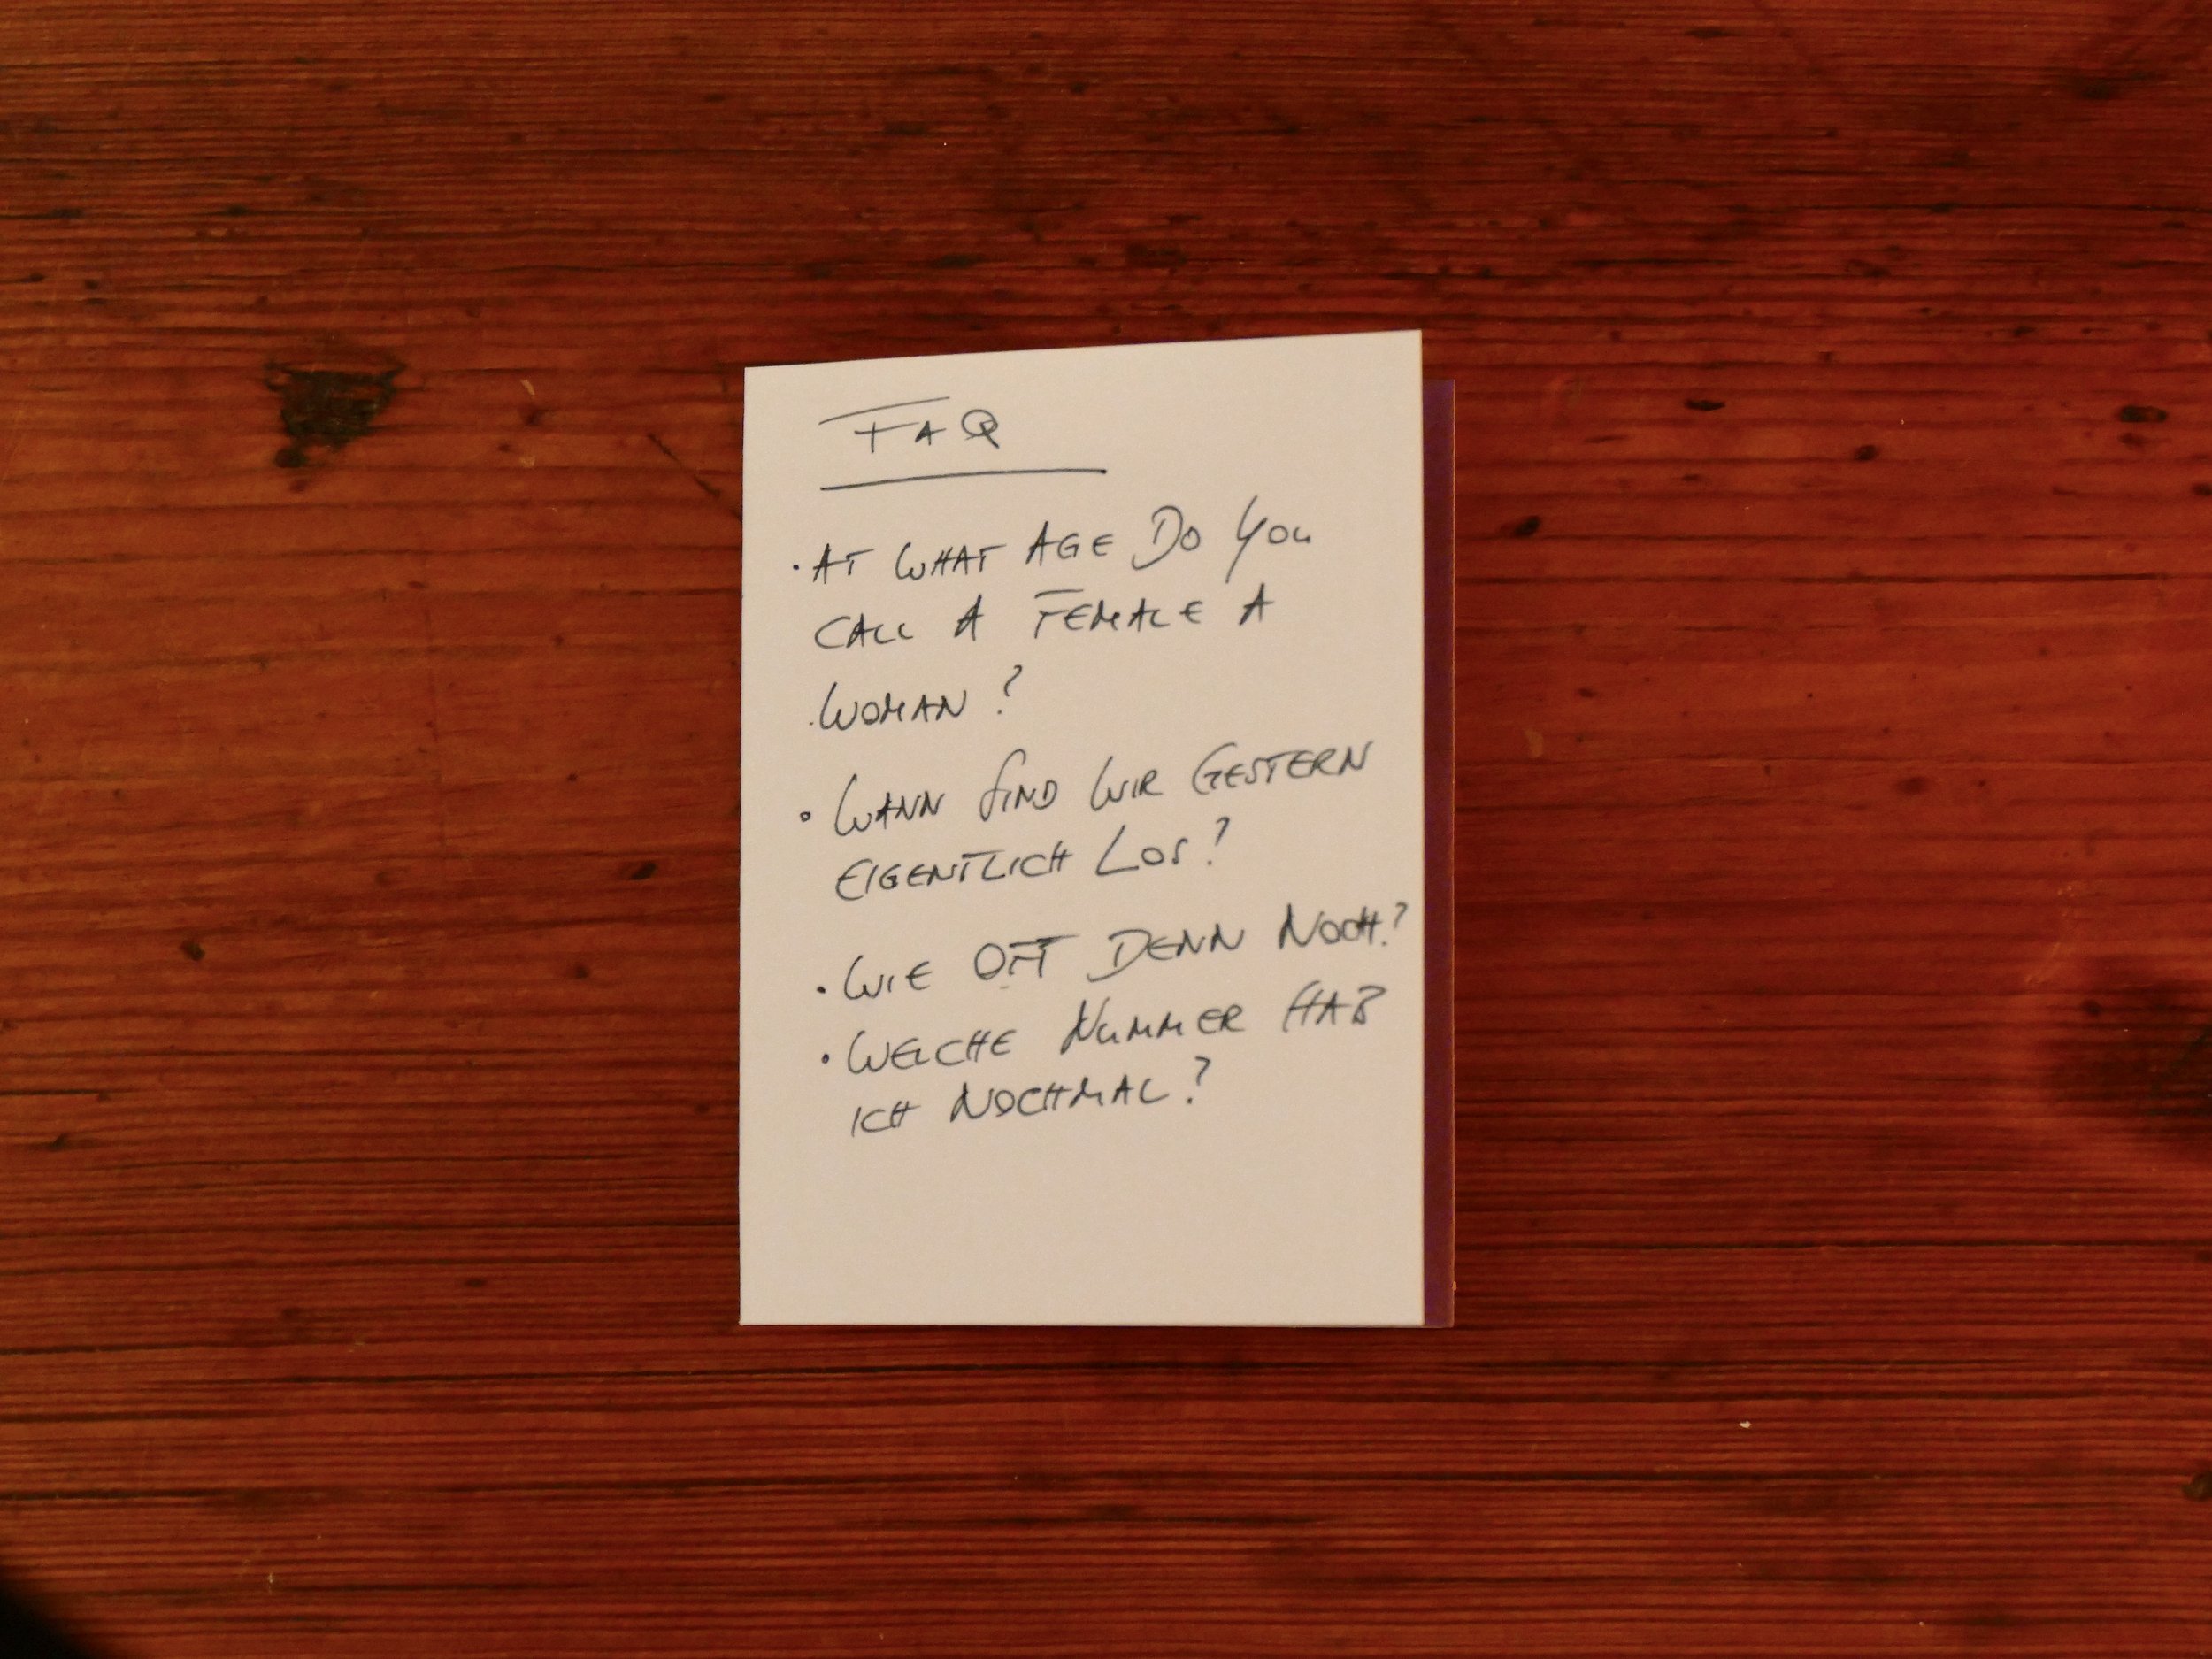 FAQ
· AT WHAT AGE DO YOU
CALL A FEMALE A
WOMAN?
· WANN SIND WIR GESTERN
EIGENTLICH LOS?
· WIE OFT DENN NOCH?
· WELCHE NUMMER HAB
ICH NOCHMAL?